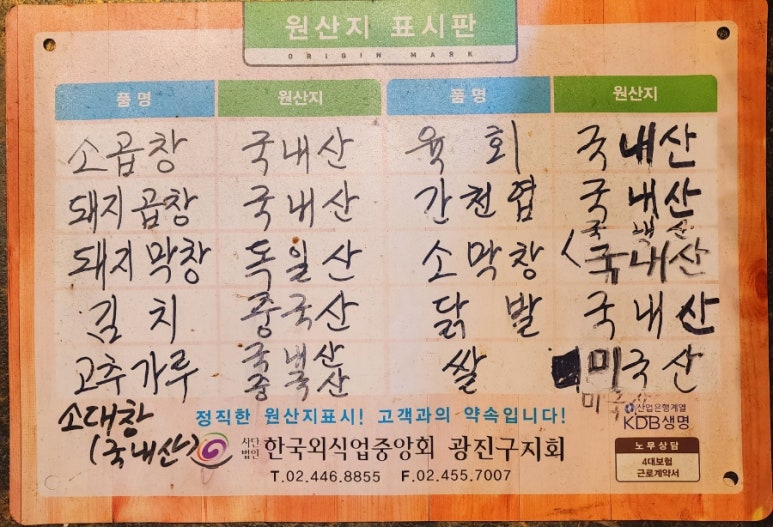 원산지 표시판
ORIGIN MARK
품명 원산지 품명 원산지
소곱창 국내산 육회 국내산
돼지곱창 국내산 간천엽 국내산
국내산
돼지막창 독일산 소막창 < 국내산
김치 중국산 닭발 국내산
고추가루 국내산 중국산 쌀 미국산
미국산
소대창
(국내산)
정직한 원산지표시! 고객과의 약속입니다!
산업은행계열
KDB생명
사단법인 한국외식업중앙회 광진구지회
T.02.446.8855 F.02.455.7007
노무상담
4대보험
근로계약서